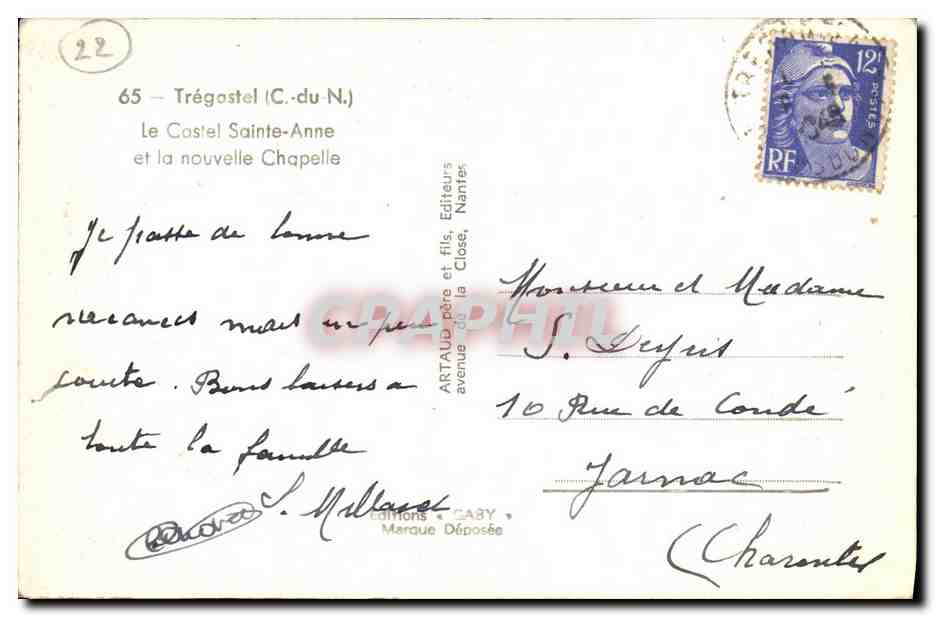 22
65 – Trégastel (C.-du-N.)
Le Castel Sainte-Anne
et la nouvelle Chapelle
Je passe de bonne
vacances mais un peu
courte. Bons baisers a
toute la famille
ARTAUD père et fils, Editeurs
avenue de la Close, Nantes
CPAPHIL
12F
POSTES
RF
Monsieur et Madame
10 Rue de Condé
Jarnac
(Charente)
Editions « GABY »
Marque Déposée